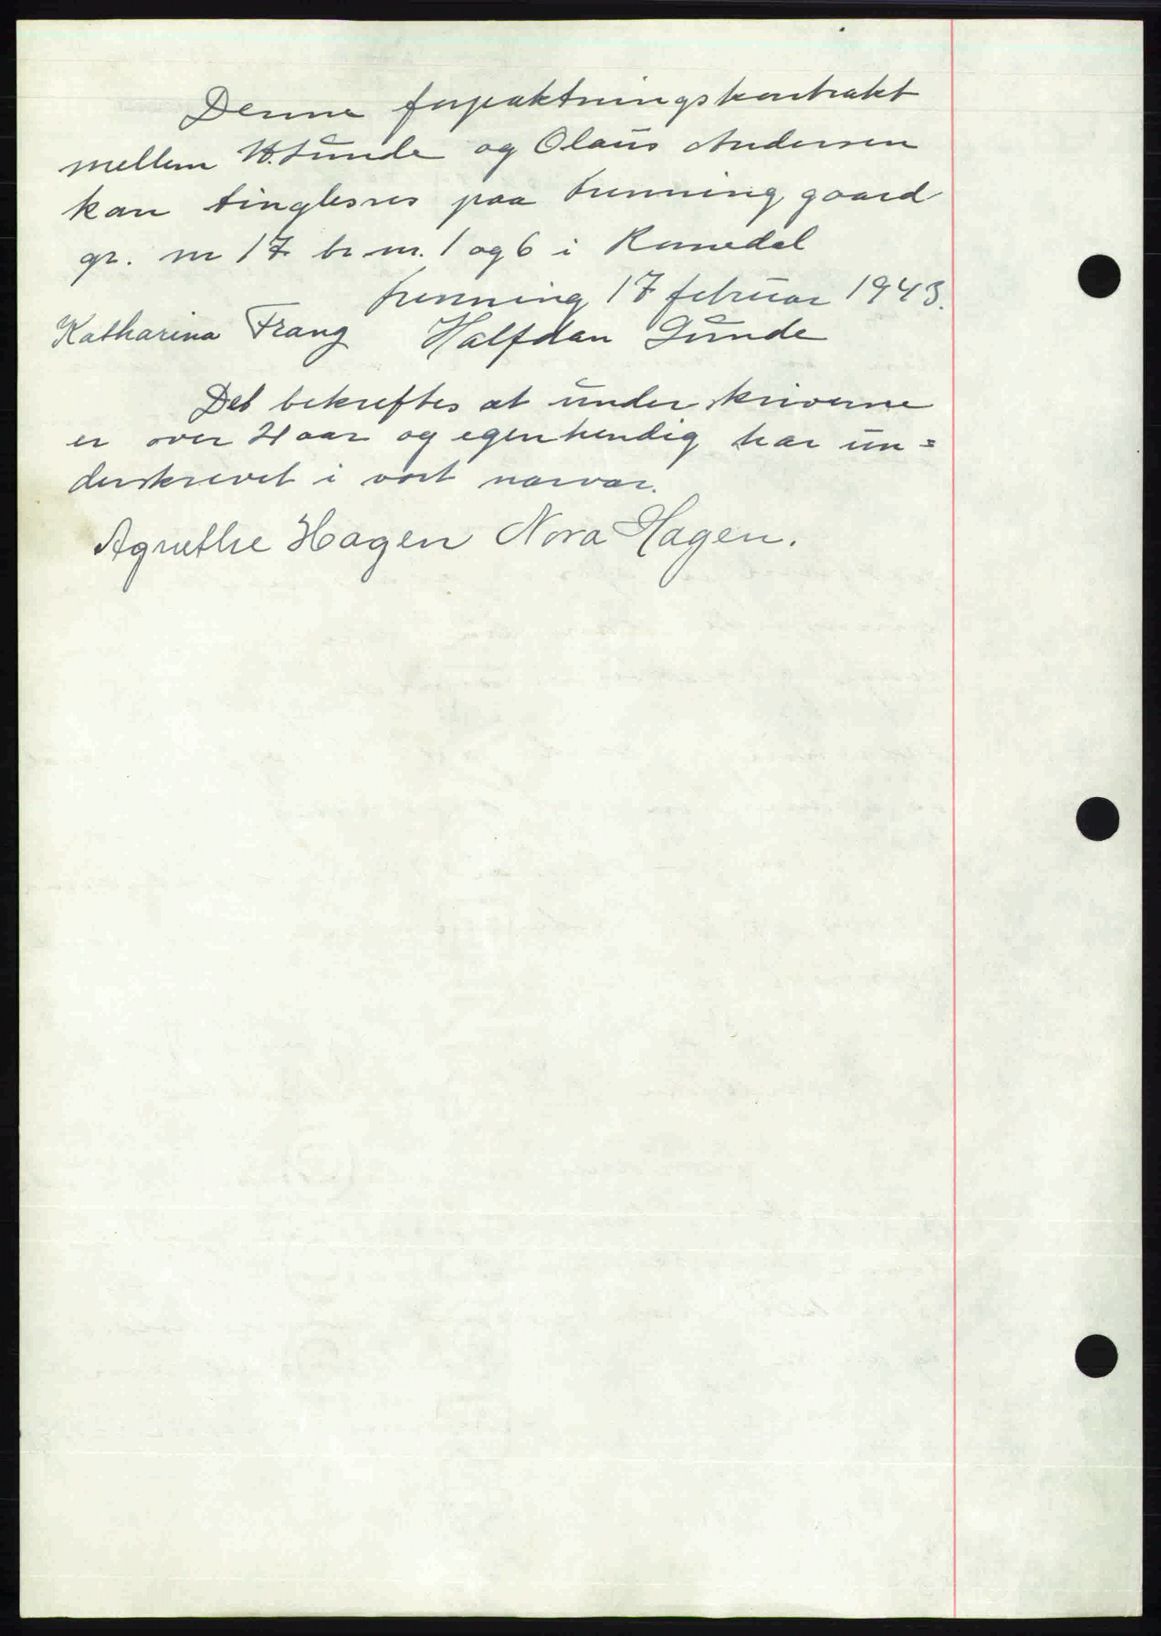 Denne forpaktningskontrakt
mellem H. Sunde og Olaus Andersen
kan tinglesnes paa Frenning gaard
gr. nr 17 br nr. 1 og 6 i Romedal
Frenning 17 februar 1943.
Katharina Frang Halfdan Sunde
Det bekreftes at underskriverne
er over 21 aar og egenhendig har un=
derskrevet i vort nærvær.
Agnethe Hagen Nora Hagen.